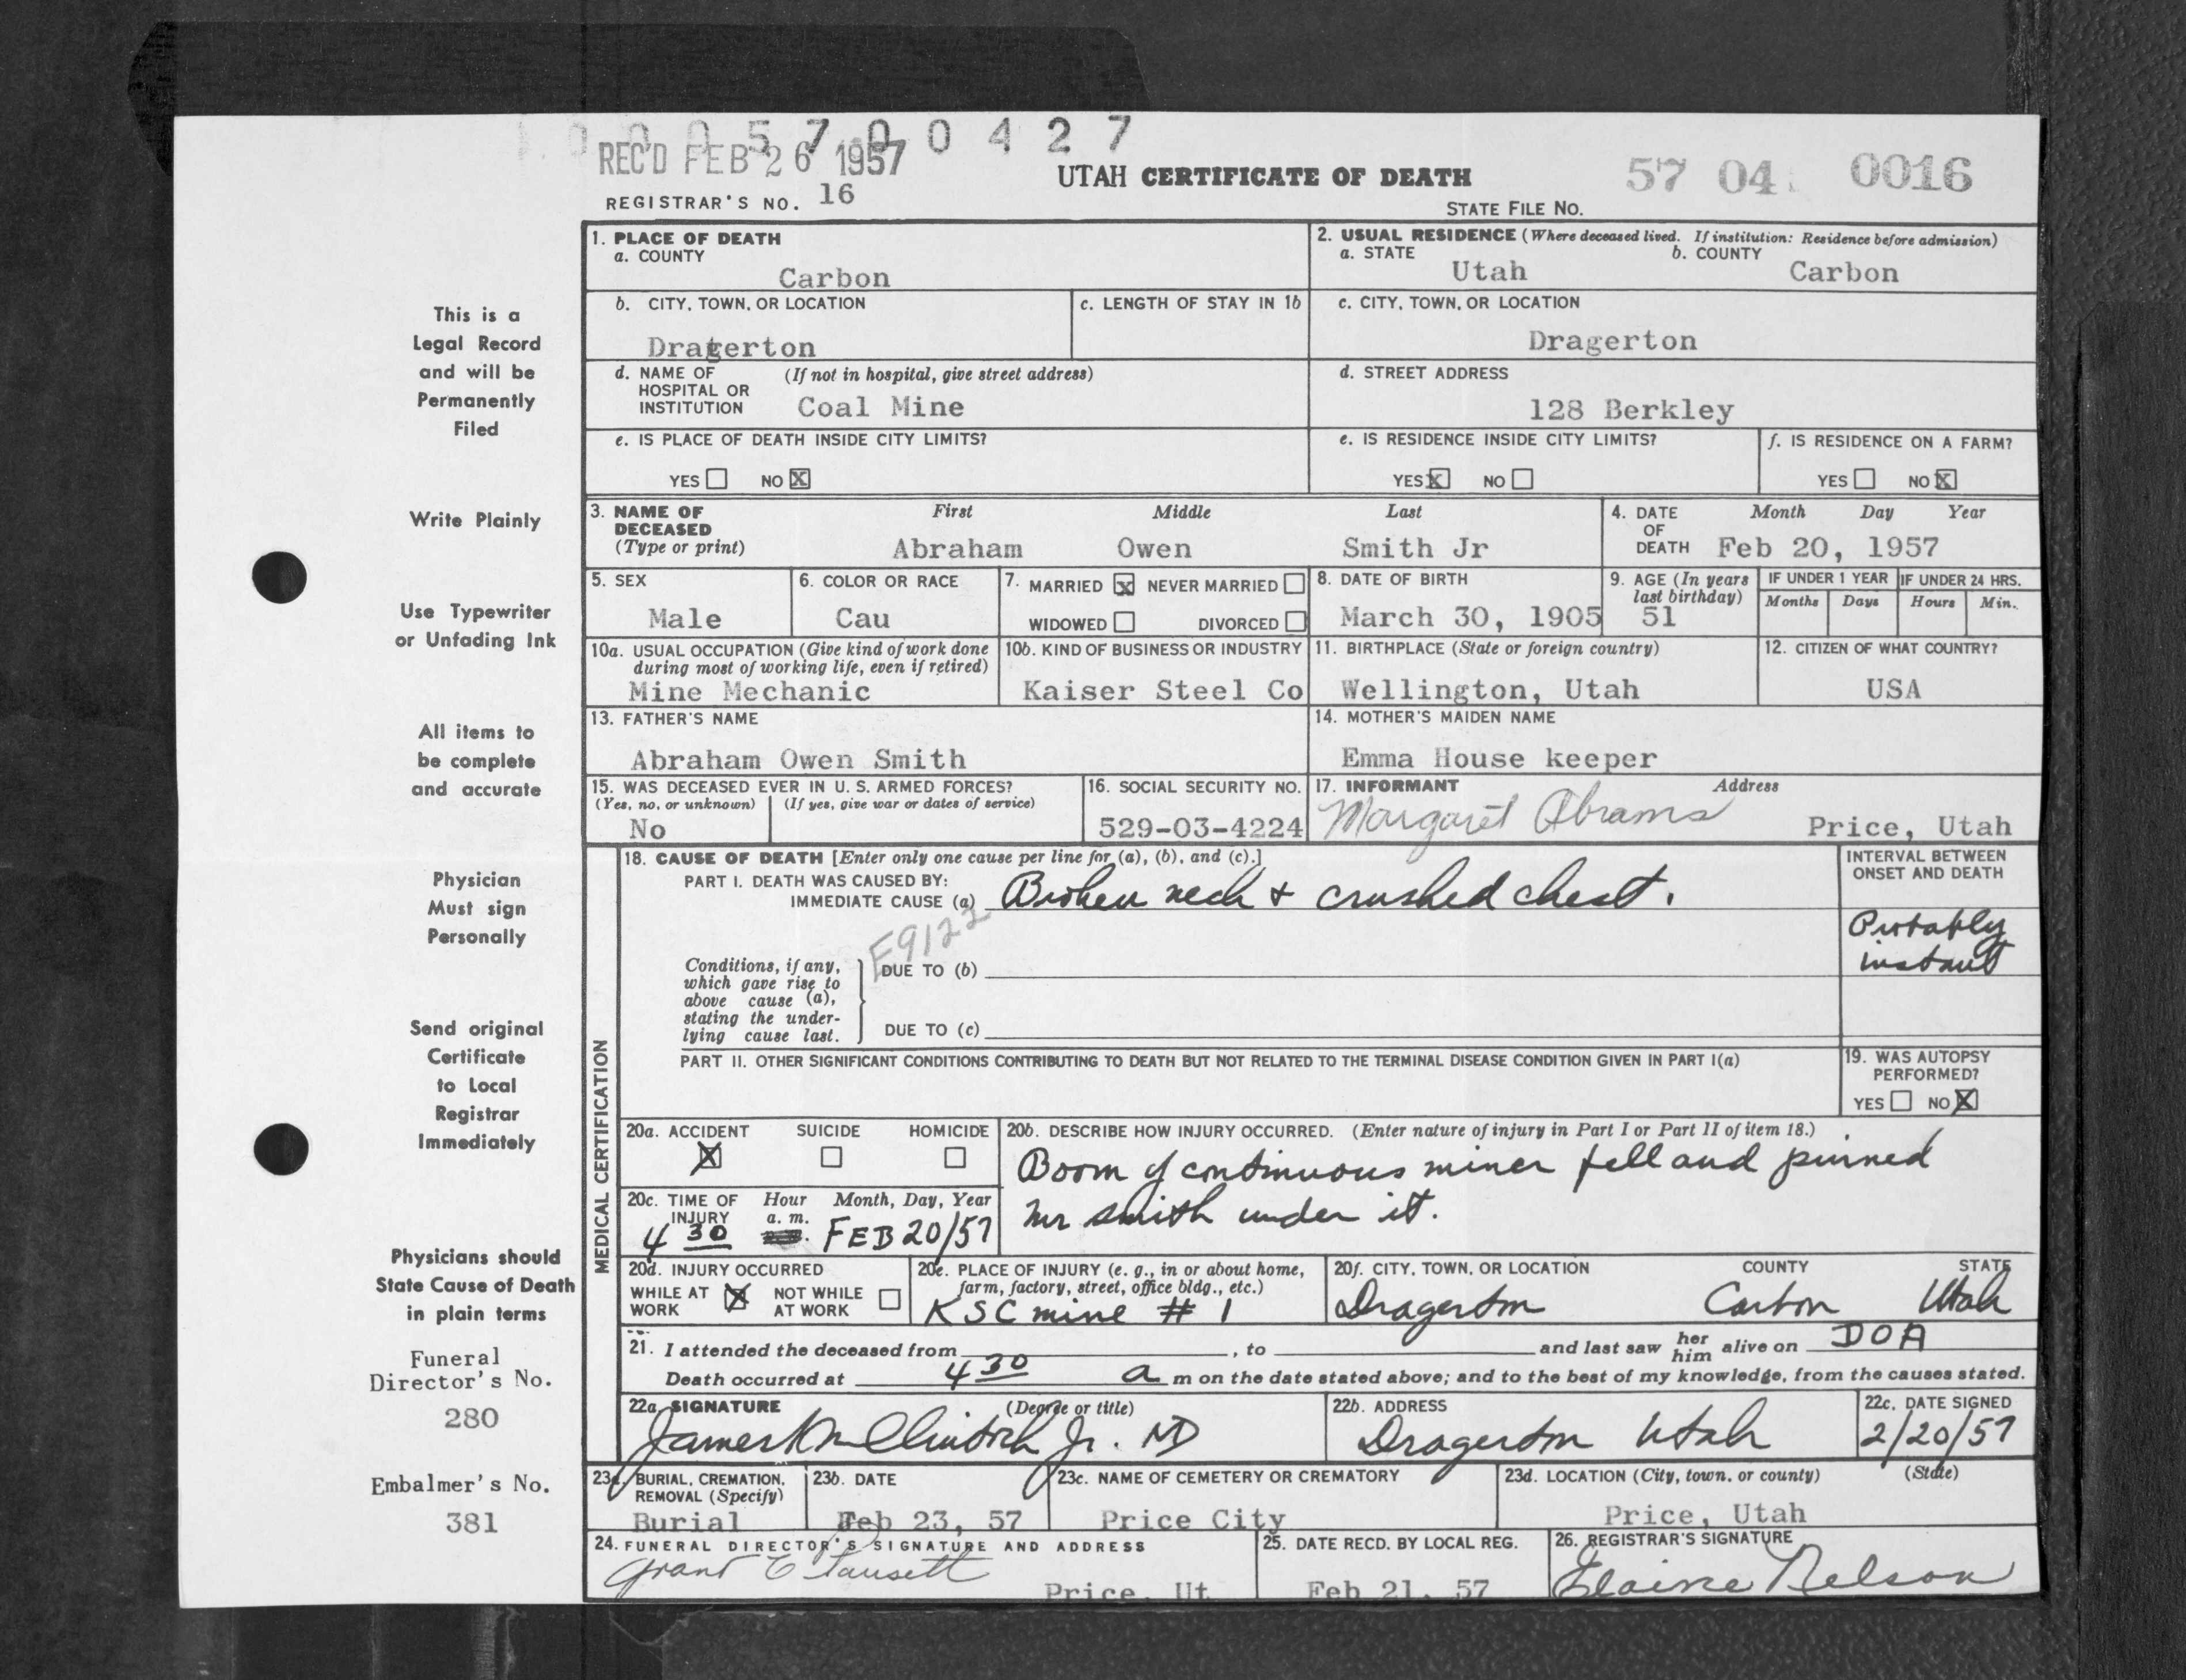 1 0 0 0 5 7 0 0 4 2 7
REC'D FEB 26 1957
UTAH CERTIFICATE OF DEATH
57 04 0016
REGISTRAR'S NO. 16
STATE FILE NO.
1. PLACE OF DEATH
a. COUNTY
Carbon
2. USUAL RESIDENCE (Where deceased lived. If institution: Residence before admission)
a. STATE b. COUNTY
Utah Carbon
b. CITY, TOWN, OR LOCATION
Dragerton
c. LENGTH OF STAY IN 1b
c. CITY, TOWN, OR LOCATION
Dragerton
d. NAME OF (If not in hospital, give street address)
HOSPITAL OR
INSTITUTION Coal Mine
d. STREET ADDRESS
128 Berkley
e. IS PLACE OF DEATH INSIDE CITY LIMITS?
YES NO X
e. IS RESIDENCE INSIDE CITY LIMITS?
YES X NO
f. IS RESIDENCE ON A FARM?
YES NO X
3. NAME OF DECEASED (Type or print)
First Middle Last
Abraham Owen Smith Jr
4. DATE OF DEATH
Month Day Year
Feb 20, 1957
5. SEX
Male
6. COLOR OR RACE
Cau
7. MARRIED X NEVER MARRIED
WIDOWED DIVORCED
8. DATE OF BIRTH
March 30, 1905
9. AGE (In years last birthday)
51
IF UNDER 1 YEAR IF UNDER 24 HRS.
Months Days Hours Min.
10a. USUAL OCCUPATION (Give kind of work done
during most of working life, even if retired)
Mine Mechanic
10b. KIND OF BUSINESS OR INDUSTRY
Kaiser Steel Co
11. BIRTHPLACE (State or foreign country)
Wellington, Utah
12. CITIZEN OF WHAT COUNTRY?
USA
13. FATHER'S NAME
Abraham Owen Smith
14. MOTHER'S MAIDEN NAME
Emma House keeper
15. WAS DECEASED EVER IN U. S. ARMED FORCES?
(Yes, no, or unknown) (If yes, give war or dates of service)
No
16. SOCIAL SECURITY NO.
529-03-4224
17. INFORMANT Address
Margaret Abrams Price, Utah
MEDICAL CERTIFICATION
18. CAUSE OF DEATH [Enter only one cause per line for (a), (b), and (c).]
PART I. DEATH WAS CAUSED BY:
IMMEDIATE CAUSE (a) Broken neck & crushed chest.
INTERVAL BETWEEN
ONSET AND DEATH
Probably
instant
E9122
Conditions, if any,
which gave rise to
above cause (a),
stating the under-
lying cause last.
DUE TO (b)
DUE TO (c)
PART II. OTHER SIGNIFICANT CONDITIONS CONTRIBUTING TO DEATH BUT NOT RELATED TO THE TERMINAL DISEASE CONDITION GIVEN IN PART I(a)
19. WAS AUTOPSY
PERFORMED?
YES NO X
20a. ACCIDENT SUICIDE HOMICIDE
X
20b. DESCRIBE HOW INJURY OCCURRED. (Enter nature of injury in Part I or Part II of item 18.)
Boom of continuous miner fell and pinned
Mr Smith under it.
20c. TIME OF INJURY Hour Month, Day, Year
a. m.
4 30 FEB 20/57
20d. INJURY OCCURRED
WHILE AT WORK X NOT WHILE AT WORK
20e. PLACE OF INJURY (e. g., in or about home,
farm, factory, street, office bldg., etc.)
KSC mine # 1
20f. CITY, TOWN, OR LOCATION COUNTY STATE
Dragerton Carbon Utah
21. I attended the deceased from , to and last saw her him alive on DOA
Death occurred at 4 30 a m on the date stated above; and to the best of my knowledge, from the causes stated.
22a. SIGNATURE (Degree or title)
James McClintock Jr. MD
22b. ADDRESS
Dragerton Utah
22c. DATE SIGNED
2/20/57
23a. BURIAL, CREMATION,
REMOVAL (Specify)
Burial
23b. DATE
Feb 23, 57
23c. NAME OF CEMETERY OR CREMATORY
Price City
23d. LOCATION (City, town, or county) (State)
Price, Utah
24. FUNERAL DIRECTOR'S SIGNATURE AND ADDRESS
Grant E Fausett
Price, Ut
25. DATE RECD. BY LOCAL REG.
Feb 21, 57
26. REGISTRAR'S SIGNATURE
Elaine Nelson
This is a
Legal Record
and will be
Permanently
Filed
Write Plainly
Use Typewriter
or Unfading Ink
All items to
be complete
and accurate
Physician
Must sign
Personally
Send original
Certificate
to Local
Registrar
Immediately
Physicians should
State Cause of Death
in plain terms
Funeral
Director's No.
280
Embalmer's No.
381